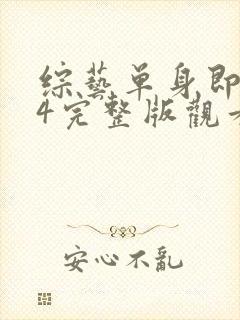 綜藝单身即
4完整版觀
安心不亂